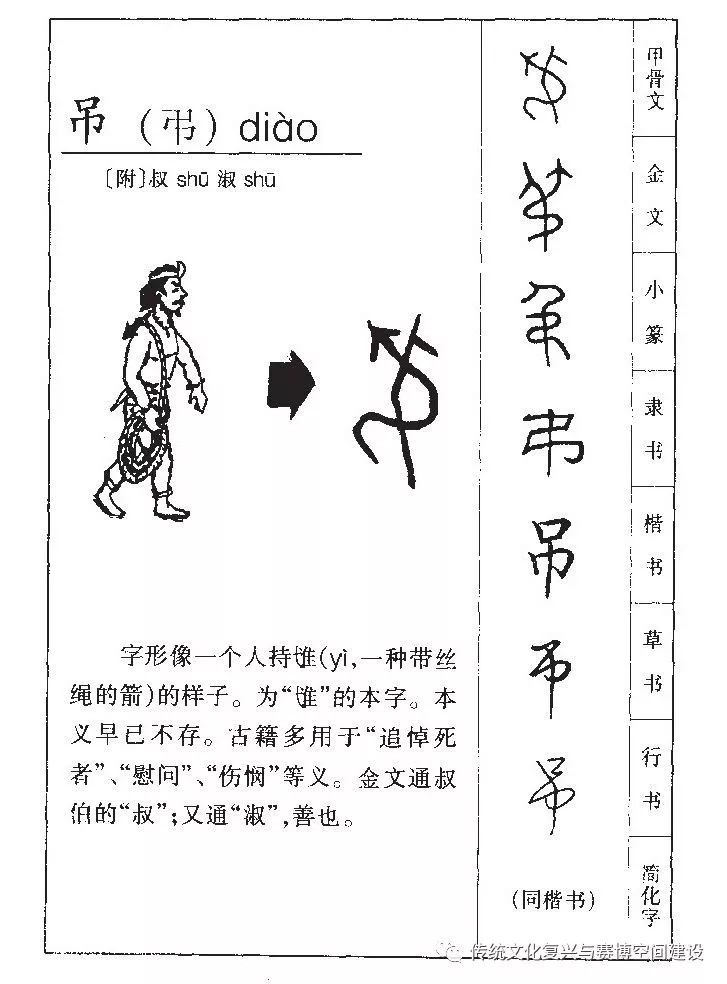 吊（弔）diào
〔附〕叔 shū 淑 shū
字形像一个人持隿(yì,一种带丝
绳的箭)的样子。为“隿”的本字。本
义早已不存。古籍多用于“追悼死
者”、“慰问”、“伤悯”等义。金文通叔
伯的“叔”;又通“淑”,善也。
甲骨文
金文
小篆
弔 隶书
吊 楷书
草书
吊 行书
(同楷书) 简化字
传统文化复兴与赛博空间建设